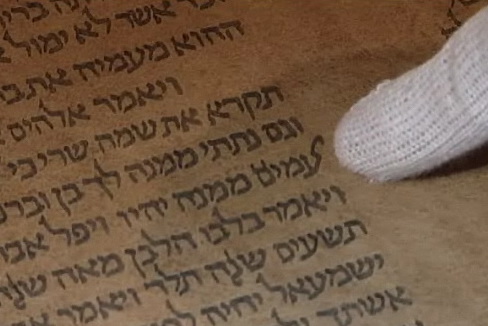 אשר לא ימול
ההוא מעמיה את
ויאמר אלהים
תקרא את שמה שרי כי
וגם נתתי ממנה לך בן
לעמים ממנה יהיו ויפל
ויאמר בלבו הלבן מאה שנה
תשעים שנה תלד ויאמר
ישמעאל יחיה
אשתך